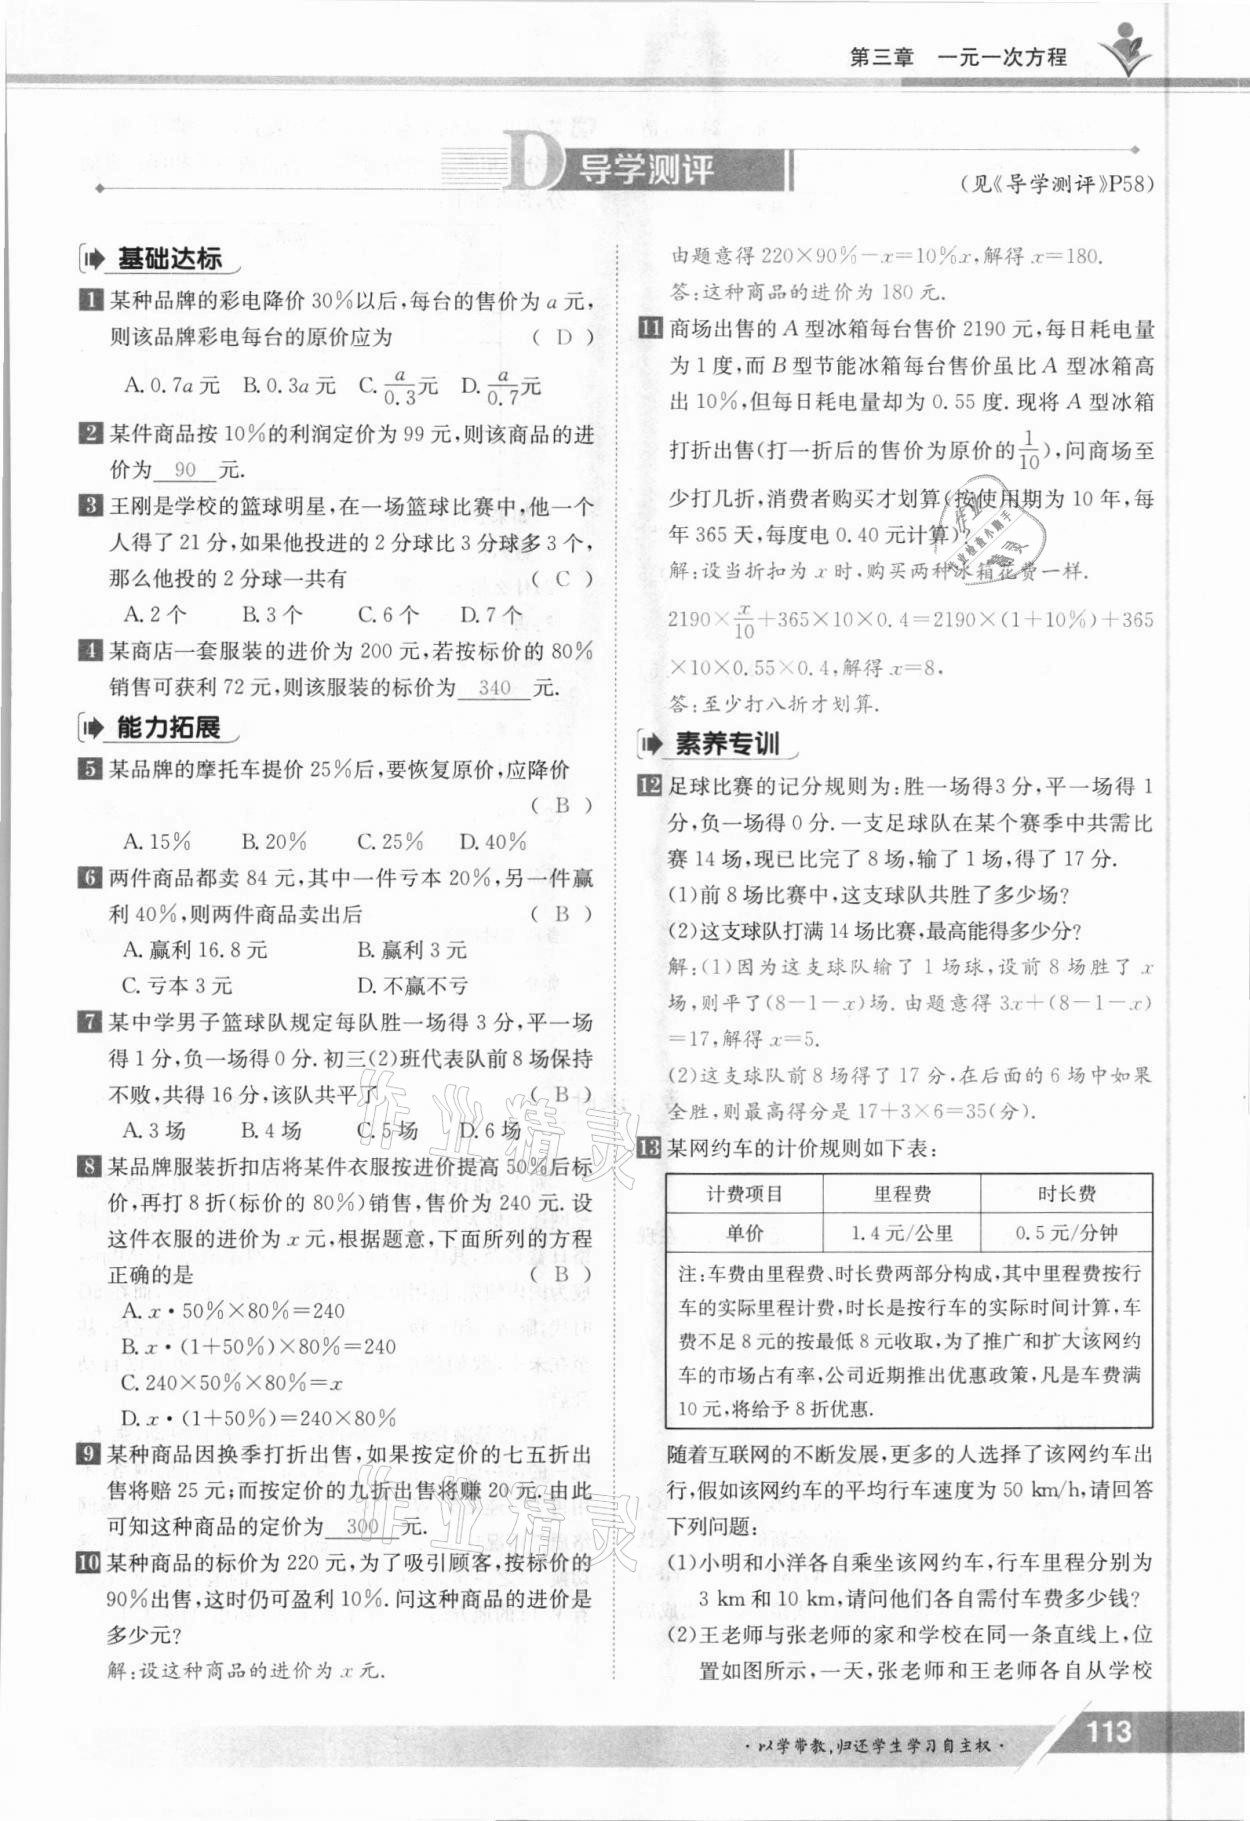 第三章 一元一次方程
D 导学测评
(见《导学测评》P58)
基础达标
1 某种品牌的彩电降价30%以后,每台的售价为a元,
则该品牌彩电每台的原价应为 ( D )
A. 0.7a元 B. 0.3a元 C. a/0.3元 D. a/0.7元
2 某件商品按10%的利润定价为99元,则该商品的进
价为 90 元.
3 王刚是学校的篮球明星,在一场篮球比赛中,他一个
人得了21分,如果他投进的2分球比3分球多3个,
那么他投的2分球一共有 ( C )
A. 2个 B. 3个 C. 6个 D. 7个
4 某商店一套服装的进价为200元,若按标价的80%
销售可获利72元,则该服装的标价为 340 元.
能力拓展
5 某品牌的摩托车提价25%后,要恢复原价,应降价
( B )
A. 15% B. 20% C. 25% D. 40%
6 两件商品都卖84元,其中一件亏本20%,另一件赢
利40%,则两件商品卖出后 ( B )
A. 赢利16.8元 B. 赢利3元
C. 亏本3元 D. 不赢不亏
7 某中学男子篮球队规定每队胜一场得3分,平一场
得1分,负一场得0分.初三(2)班代表队前8场保持
不败,共得16分,该队共平了 ( B )
A. 3场 B. 4场 C. 5场 D. 6场
8 某品牌服装折扣店将某件衣服按进价提高50%后标
价,再打8折(标价的80%)销售,售价为240元.设
这件衣服的进价为x元,根据题意,下面所列的方程
正确的是 ( B )
A. x·50%×80%=240
B. x·(1+50%)×80%=240
C. 240×50%×80%=x
D. x·(1+50%)=240×80%
9 某种商品因换季打折出售,如果按定价的七五折出
售将赔25元;而按定价的九折出售将赚20元.由此
可知这种商品的定价为 300 元.
10 某种商品的标价为220元,为了吸引顾客,按标价的
90%出售,这时仍可盈利10%.问这种商品的进价是
多少元?
解:设这种商品的进价为x元.
由题意得220×90%-x=10%x,解得x=180.
答:这种商品的进价为180元.
11 商场出售的A型冰箱每台售价2190元,每日耗电量
为1度,而B型节能冰箱每台售价虽比A型冰箱高
出10%,但每日耗电量却为0.55度.现将A型冰箱
打折出售(打一折后的售价为原价的1/10),问商场至
少打几折,消费者购买才划算(按使用期为10年,每
年365天,每度电0.40元计算)?
解:设当折扣为x时,购买两种冰箱花费一样.
2190×x/10+365×10×0.4=2190×(1+10%)+365
×10×0.55×0.4,解得x=8.
答:至少打八折才划算.
素养专训
12 足球比赛的记分规则为:胜一场得3分,平一场得1
分,负一场得0分.一支足球队在某个赛季中共需比
赛14场,现已比完了8场,输了1场,得了17分.
(1)前8场比赛中,这支球队共胜了多少场?
(2)这支球队打满14场比赛,最高能得多少分?
解:(1)因为这支球队输了1场球,设前8场胜了x
场,则平了(8-1-x)场.由题意得3x+(8-1-x)
=17,解得x=5.
(2)这支球队前8场得了17分.在后面的6场中如果
全胜,则最高得分是17+3×6=35(分).
13 某网约车的计价规则如下表:
计费项目 里程费 时长费
单价 1.4元/公里 0.5元/分钟
注:车费由里程费、时长费两部分构成,其中里程费按行
车的实际里程计费,时长是按行车的实际时间计算,车
费不足8元的按最低8元收取,为了推广和扩大该网约
车的市场占有率,公司近期推出优惠政策,凡是车费满
10元,将给予8折优惠.
随着互联网的不断发展,更多的人选择了该网约车出
行,假如该网约车的平均行车速度为50 km/h,请回答
下列问题:
(1)小明和小洋各自乘坐该网约车,行车里程分别为
3 km和10 km,请问他们各自需付车费多少钱?
(2)王老师与张老师的家和学校在同一条直线上,位
置如图所示,一天,张老师和王老师各自从学校
·以学带教,归还学生学习自主权·
113
作业精灵
作业精灵